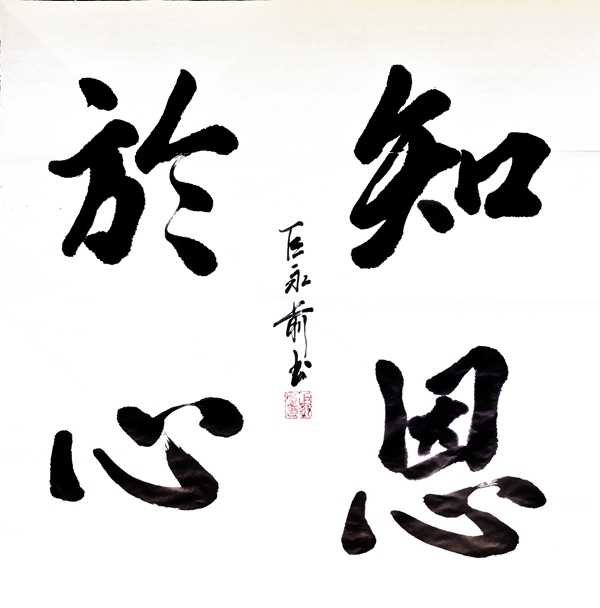 知恩
於心
巨永前书